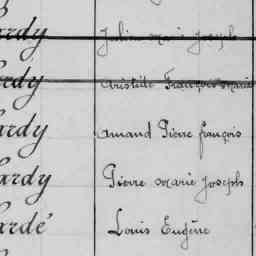 ardy Julien marie Joseph
ardy Aristide François marie
ardy Amand Pierre françois
ardy Pierre marie Joseph
ardé Louis Eugène